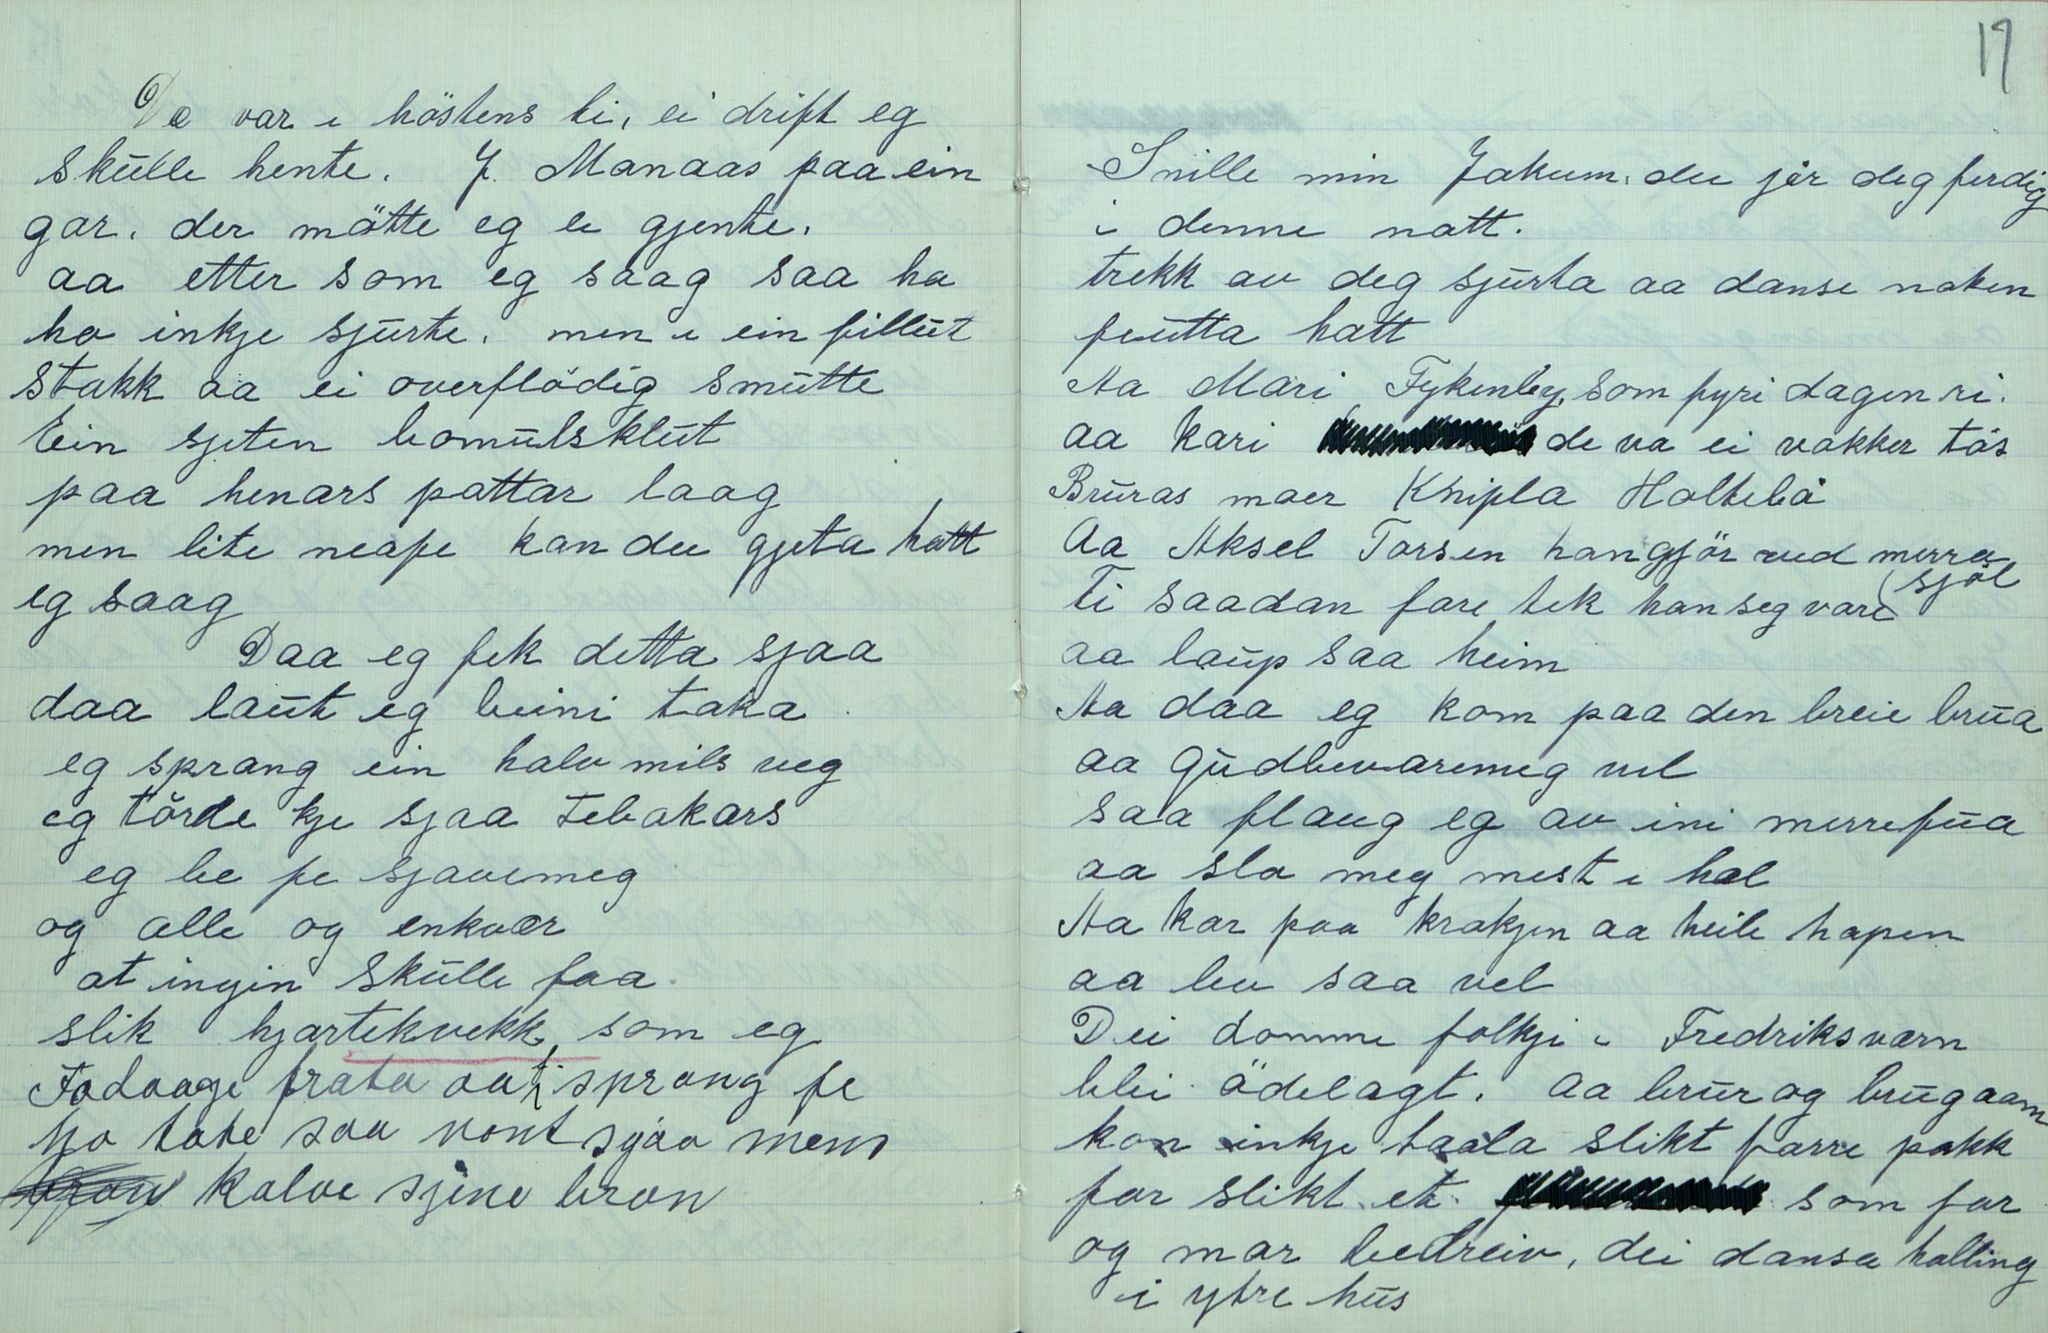 De var i höstens ti, ei drift eg
skulle hente. J. Manaas paa ein
gar. der mötte eg ei gjente.
aa etter som eg saag saa ha
ho inkje sjurte. men i ein fillut
stakk aa ei overflödig smutte
Ein sjeten bomulsklut
paa henars pattar laag
men lite neape kan du gjeta hatt
eg saag
Daa eg fek detta sjaa
daa laut eg beini taka
eg sprang ein halv mils veg
eg törde kje sjaa tebakars
eg be fe sjavemeg
og alle og enkvær
at ingin skulle faa
slik hjartekvekk som eg
Fadaage frata aa sprang fe
ho tate saa vont sjaa mens
kalve sjene bran
19
Snille min Jakum. du jer deg ferdig
i denne natt.
trekk av deg sjurta aa danse naken
futta hatt
Aa Mari Fykenbey, som fyri dagen ri.
aa kari de va ei vakker tös
Bruras moer Knipla Holtebö
Aa Aksel Torsen han gjör ved merra
sjöl
Ti saadan fare tek han seg vare
aa laup saa heim
Aa daa eg kom paa den breie brua
aa Gudbevaremeg vel
saa flaug eg av ini merrefua
aa sla meg mest i hel
Aa kar paa krakjen aa heile hapen
aa lev saa vel
Dei domme folkji i Fredriksværn
blei ödelagt. aa brur og brugaam
kan inkje taala slikt farre pakk
for slikt et som far
og mar bedreiv, dei dansa halling
i ytre hus